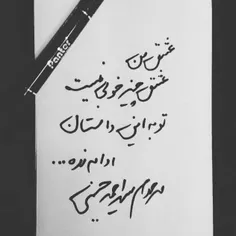 Panter
عشق من
عشق چیز خوبی نیست
تو به این داستان
ادامه نده...
مرحوم سید احمد حسینی